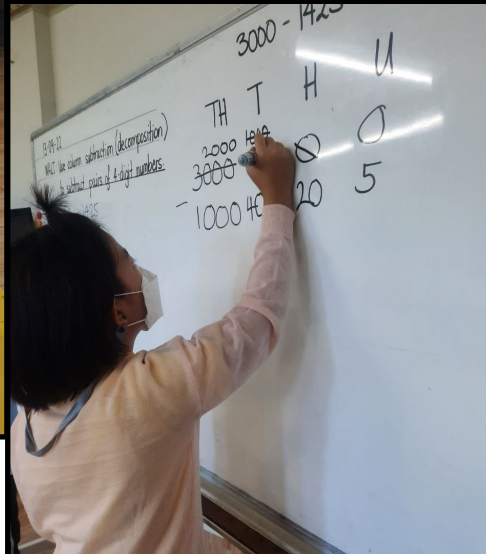 3000 - 1425
TH T H U
13-09-22
WALT Use column subtraction (decomposition)
to subtract pairs of 4-digit numbers.
2000
3000 0 0
- 1000 40 20 5